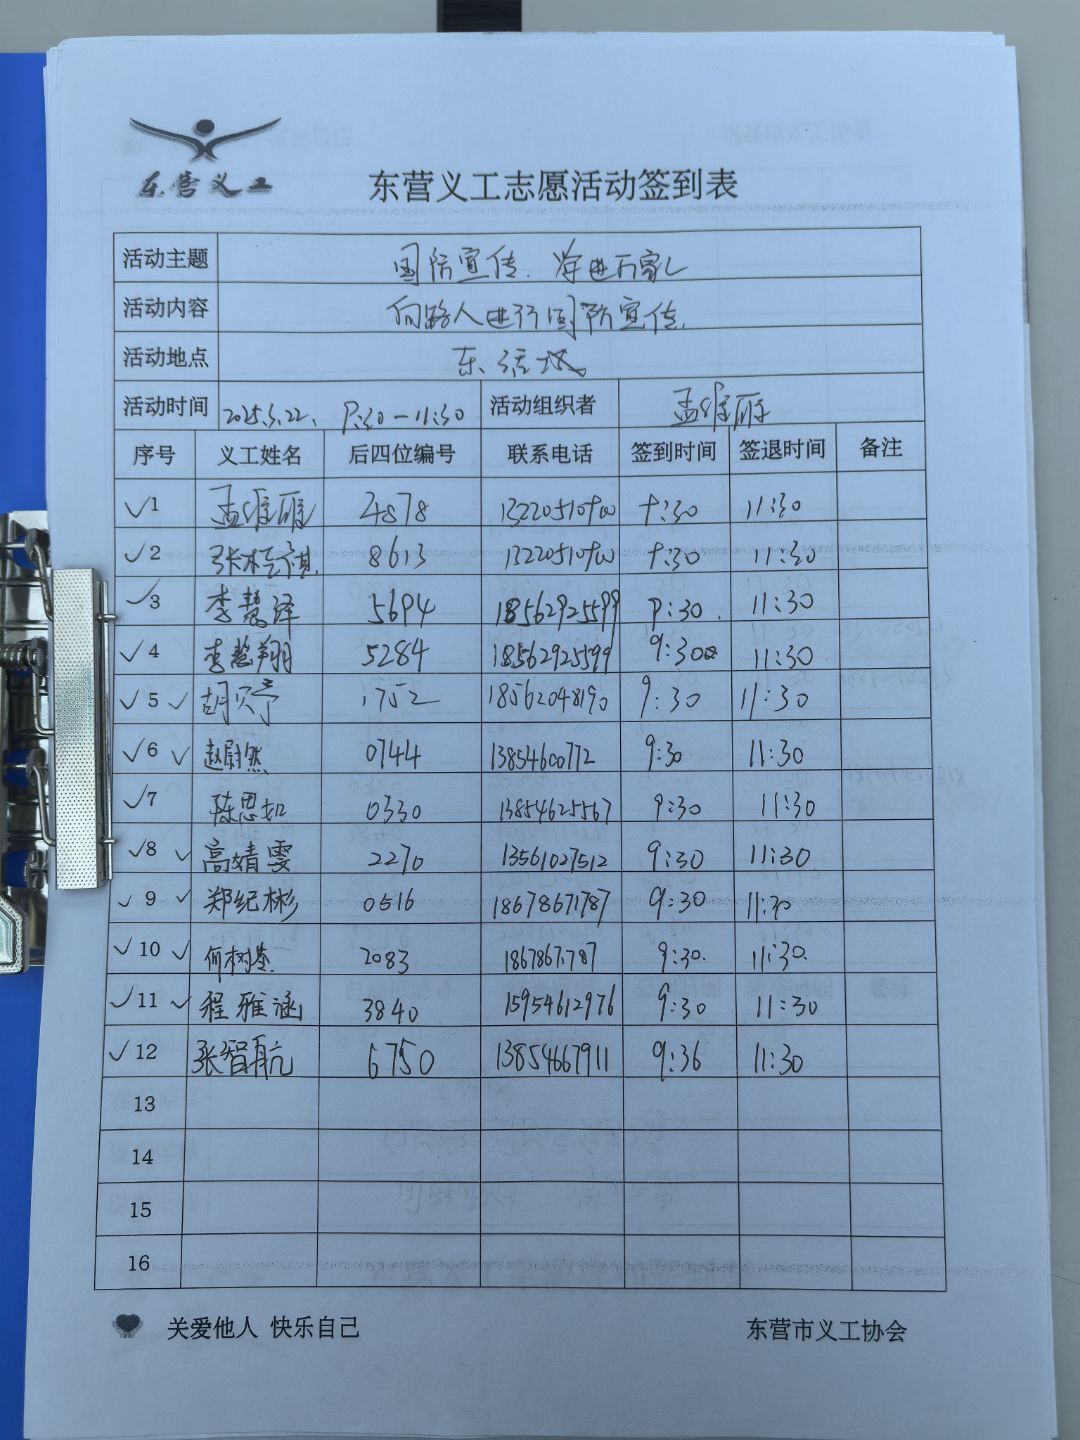 东营义工
东营义工志愿活动签到表
活动主题 国防宣传、进万家
活动内容 向路人进行国防宣传
活动地点 东
活动时间 2025.5.22. 9:30—11:30 活动组织者 孟维丽
序号 义工姓名 后四位编号 联系电话 签到时间 签退时间 备注
✓1 孟维丽 4878 9:30 11:30
✓2 张 8613 9:30 11:30
✓3 李慧泽 5694 18562925599 9:30 11:30
✓4 李慧翔 5284 18562925599 9:30 11:30
✓5 ✓ 胡 1752 18562048190 9:30 11:30
✓6 ✓ 赵尉然 0744 13854600772 9:30 11:30
✓7 陈思如 0330 13854625567 9:30 11:30
✓8 ✓ 高婧雯 2270 13561027512 9:30 11:30
✓9 ✓ 郑纪彬 0516 18678671787 9:30 11:30
✓10 ✓ 何树 2083 9:30 11:30
✓11 ✓ 程雅涵 3840 15954612976 9:30 11:30
✓12 张智航 6750 13854667911 9:36 11:30
13
14
15
16
关爱他人 快乐自己 东营市义工协会